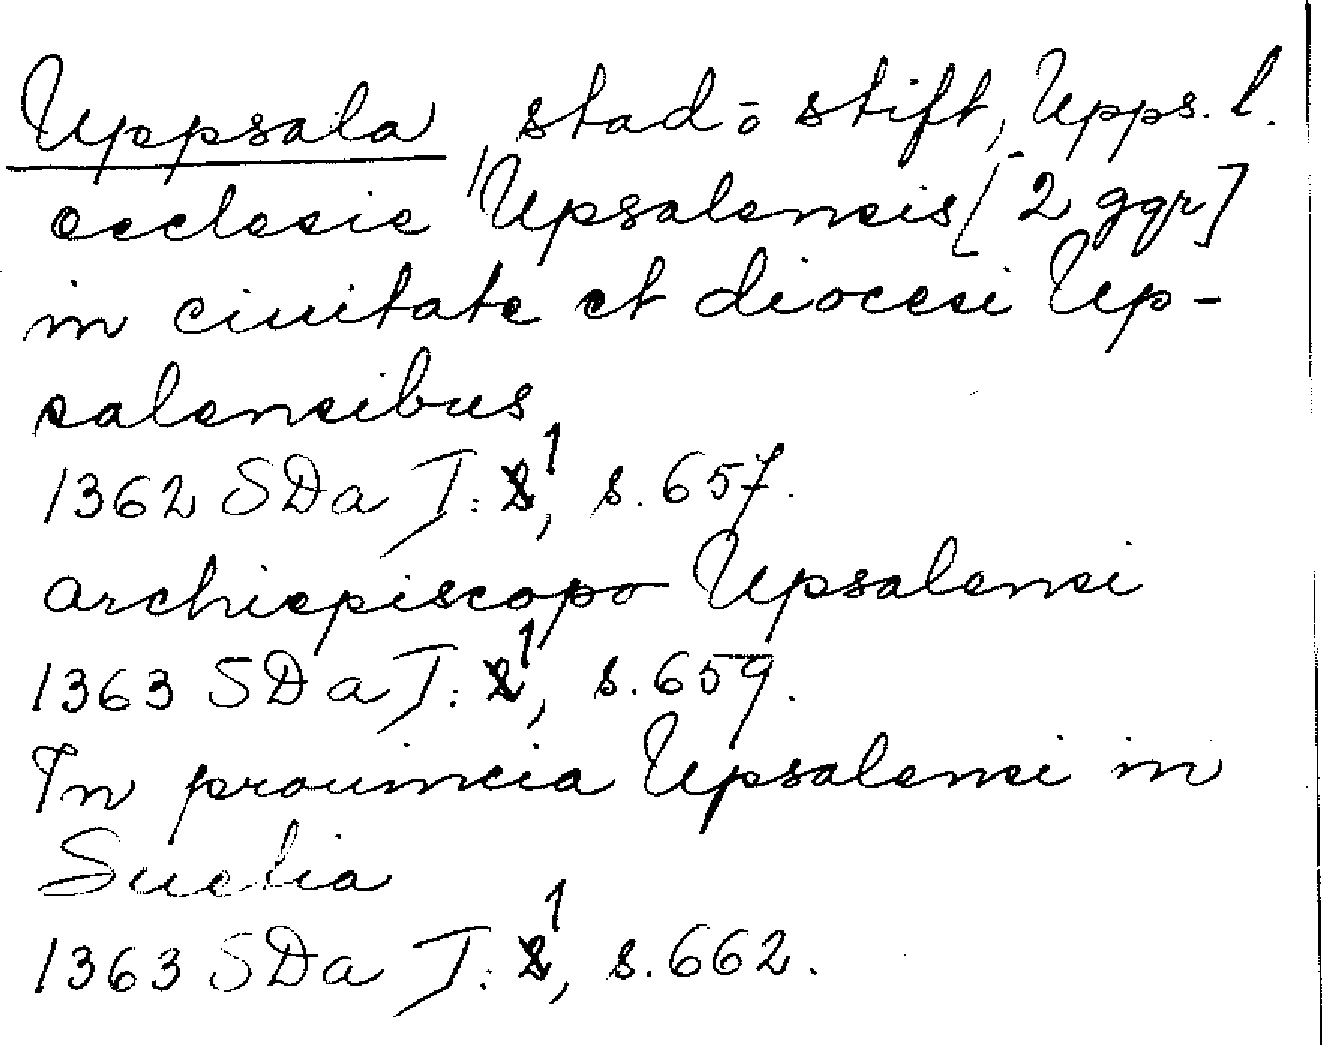 Uppsala, stad o stift, Upps. l.
ecclesie Upsalensis [2 ggr]
in ciuitate et diocesi Up-
salensibus
1362 SDa I: 1, s. 657.
archiepiscopo Upsalensi
1363 SDa I: 1, s. 659.
In prouincia Upsalensi in
Suetia
1363 SDa I: 1, s. 662.